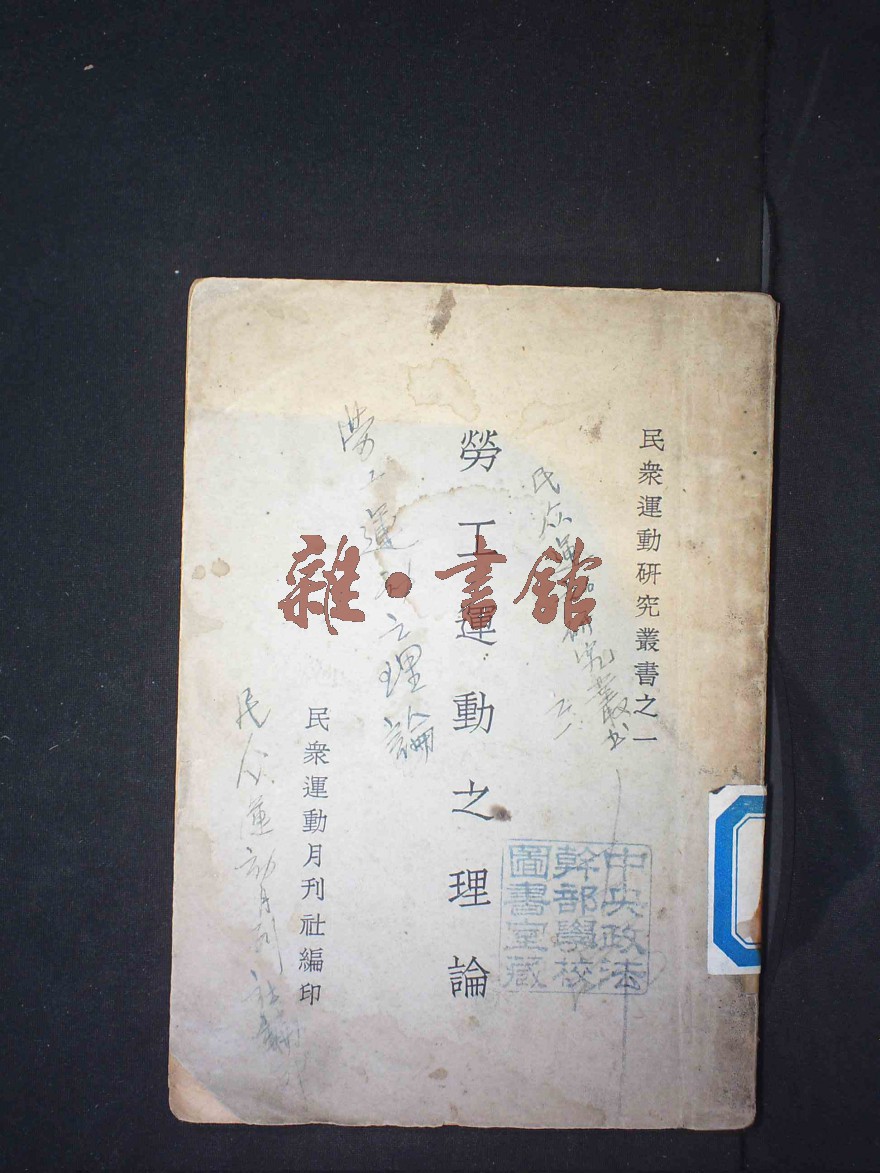 民衆運動研究叢書之一
民众運动研究叢书
之一
勞工運動之理論
勞工運动之理論
民衆運動月刊社編印
民众運动月刊社編
中央政法
幹部學校
圖書室藏
雜·書館